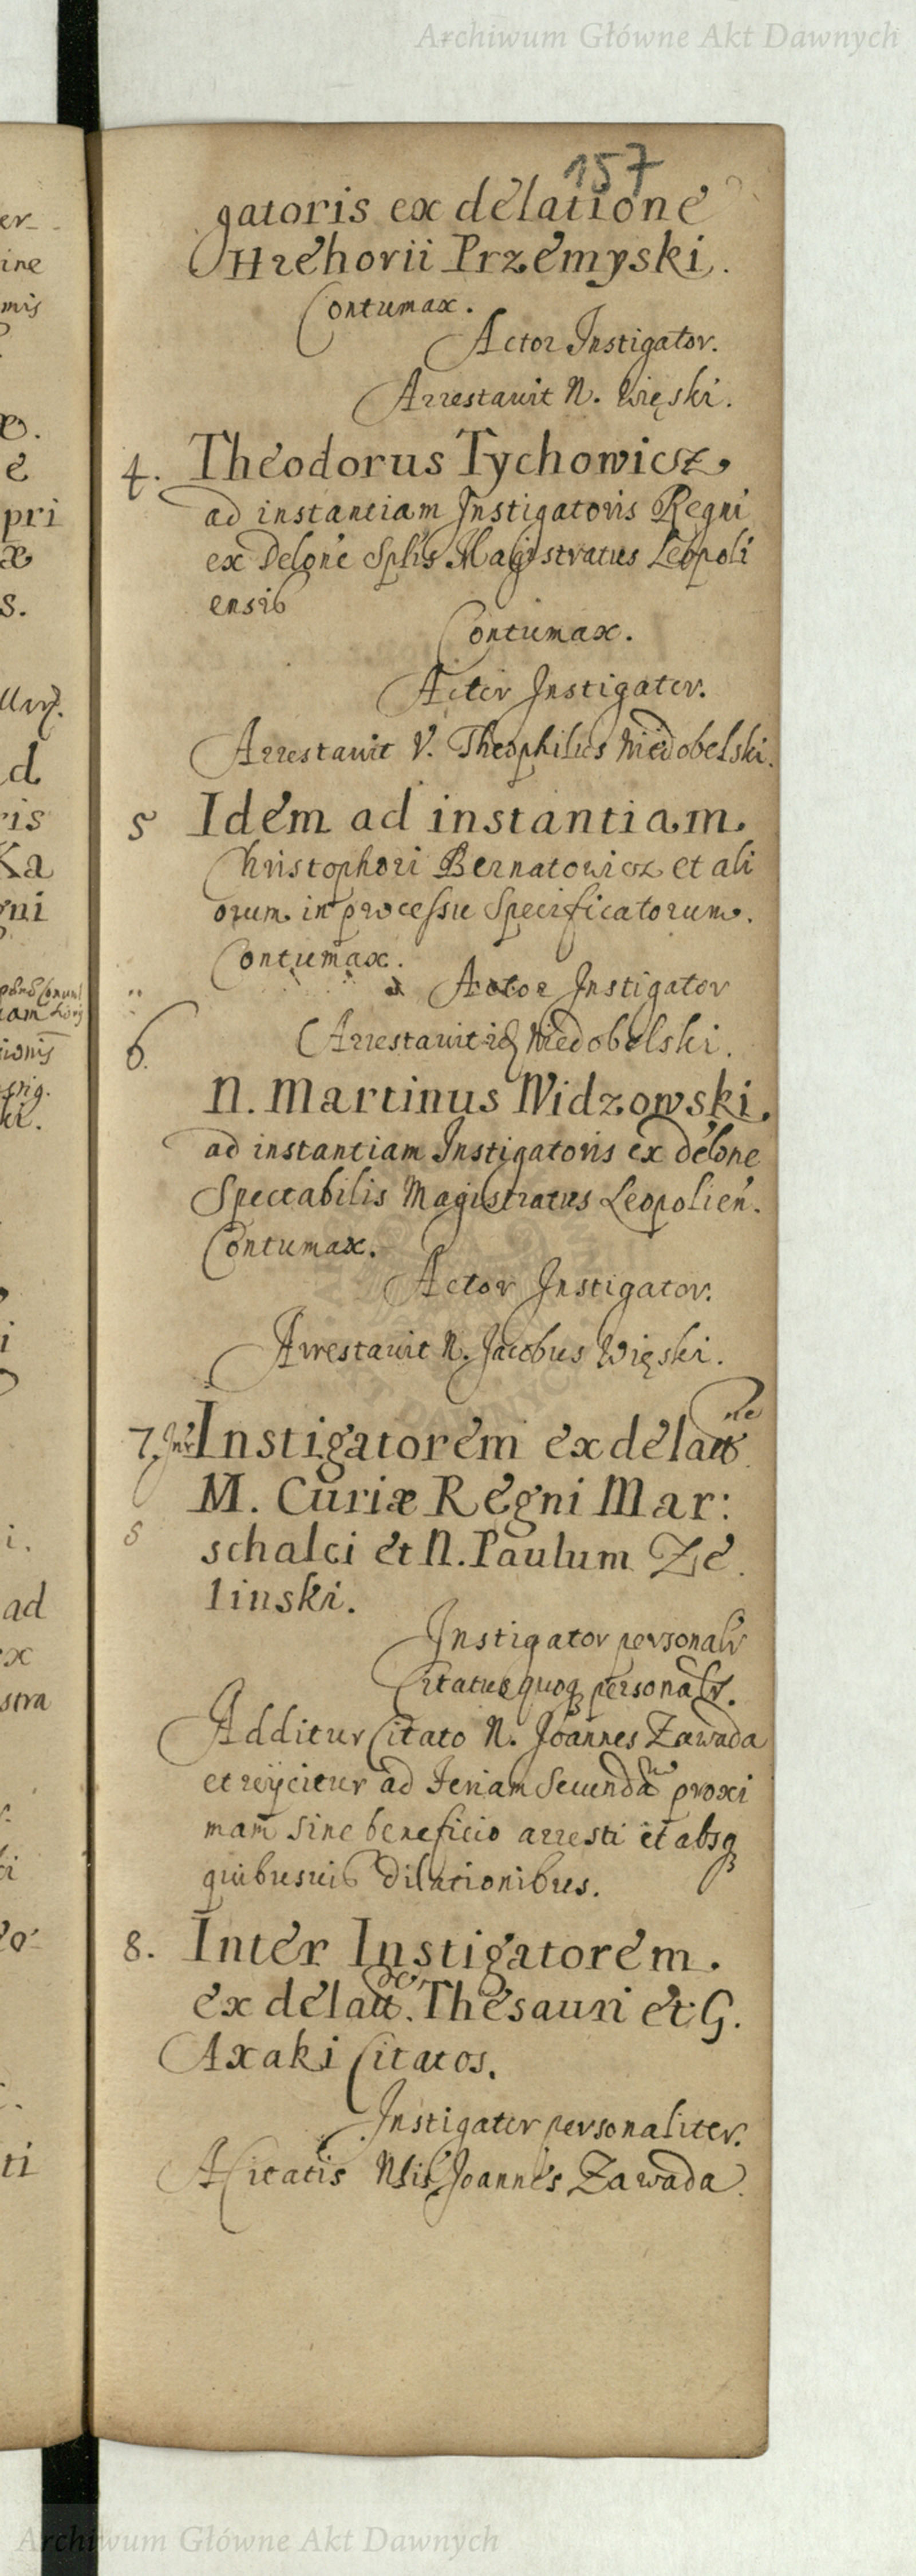 Archiwum Główne Akt Dawnych
157
gatoris ex delatione
Hrehorii Przemyski.
Contumax.
Actor Instigator.
Arrestavit N. Więski.
4. Theodorus Tychowicz
ad instantiam Instigatoris Regni
ex Delone Splis Magistratus Leopoli
ensis
Contumax.
Actor Instigator.
Arrestavit V. Theophilus Niedobelski.
5 Idem ad instantiam
Christophori Bernatowicz et ali
orum in processu Specificatorum.
Contumax.
Actor Instigator
Arrestavit Niedobelski.
6.
N. Martinus Widzowski.
ad instantiam Instigatoris ex delone
Spectabilis Magistratus Leopolien.
Contumax.
Actor Instigator.
Arrestavit N. Jacobus Więski.
7. Int Instigatorem ex delatne
M. Curiæ Regni Mar:
schalci et N. Paulum Ze
linski.
Instigator personalr
Citatus quoq personalr.
Additur Citato N. Joannes Zawada
et reijcitur ad Feriam Secunda proxi
mam sine beneficio arresti et absq
quibusvis dilationibus.
8. Inter Instigatorem.
ex delat. Thesauri et G.
Axaki Citatos.
Instigator personaliter.
A Citatis Nslis Joannes Zawada.
er
ine
mis
e
pri
æ
s.
d
ris
Ka
gni
ionis
i
i.
ad
ex
stra
ti
Archiwum Główne Akt Dawnych